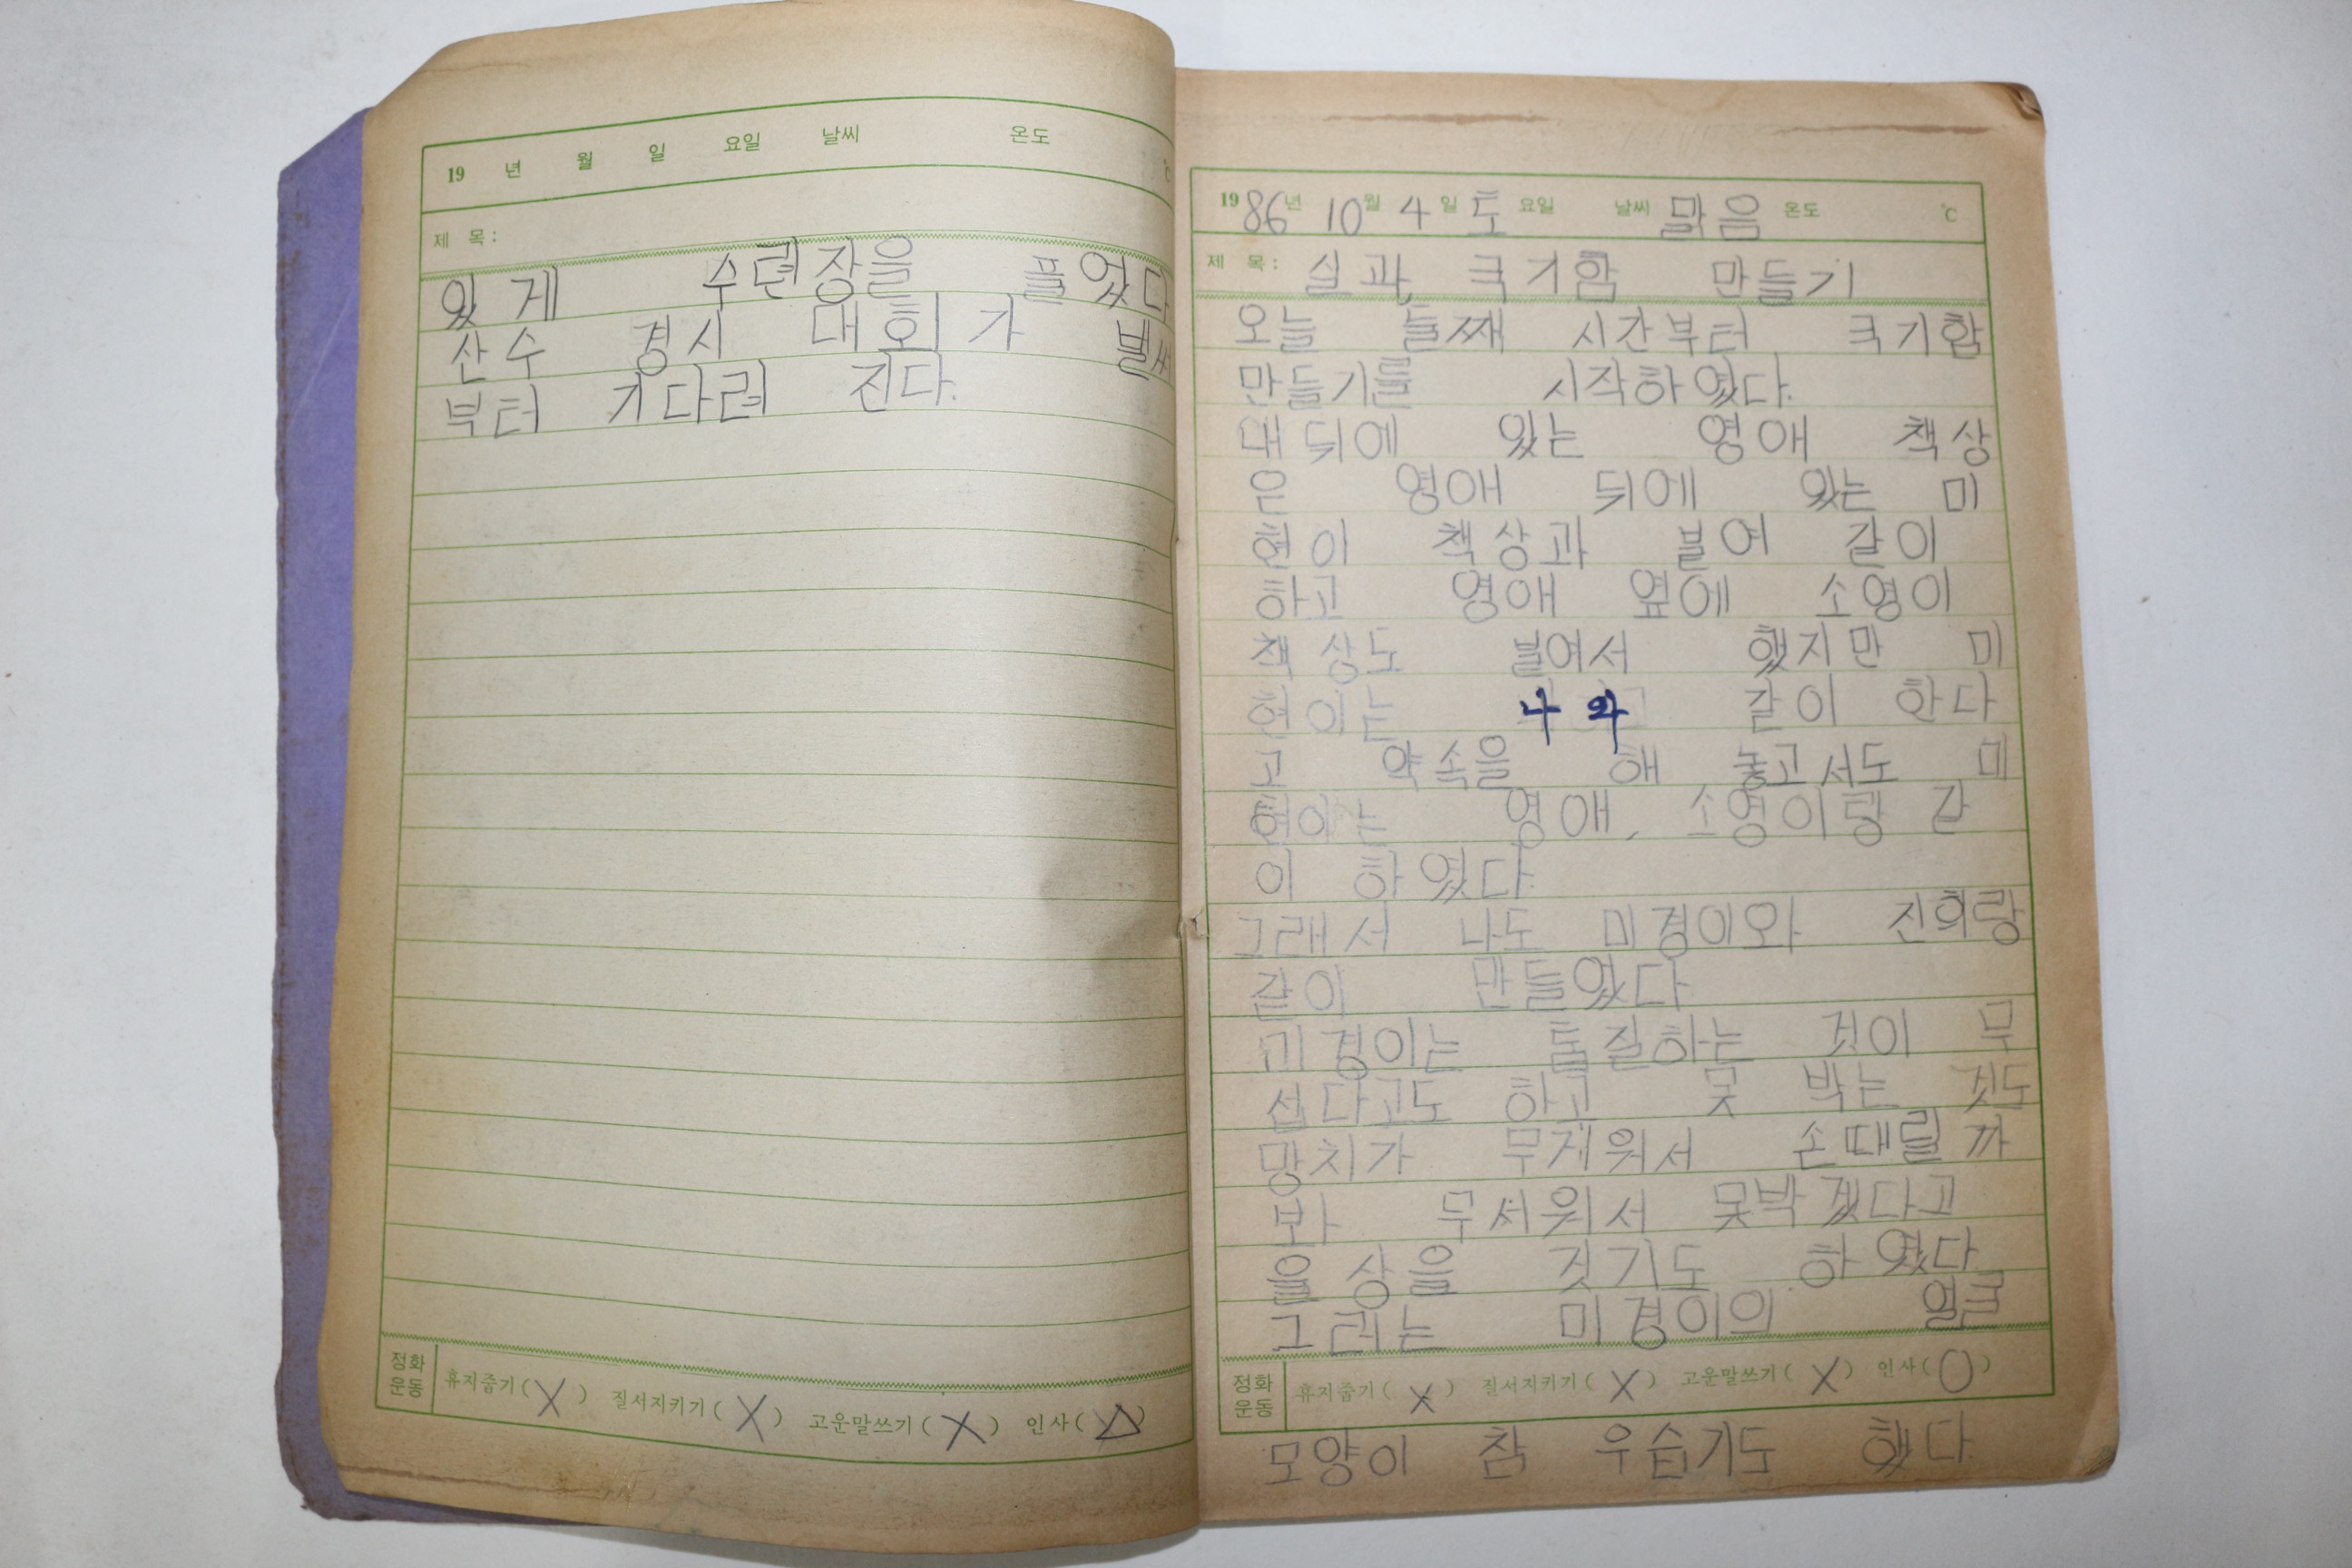 19 년 월 일 요일 날씨 온도 ℃
제 목:
있게 수련장을 플었다
산수 경시 대회가 벌써
부터 기다려 진다.
정화 운동 휴지줍기(X) 질서지키기(X) 고운말쓰기(X) 인사(△)
1986년 10월 4일 토요일 날씨 맑음 온도 ℃
제 목: 실과, 크기함 만들기
오늘 둘째 시간부터 크기함
만들기를 시작하였다.
내 뒤에 있는 영애 책상
은 영애 뒤에 있는 미
현이 책상과 붙여 같이
하고 영애 옆에 소영이
책상도 붙여서 했지만 미
현이는 나와 같이 한다
고 약속을 해 놓고서도 미
현이는 영애, 소영이랑 같
이 하였다.
그래서 나도 미경이와 진희랑
같이 만들었다
미경이는 톱질하는 것이 무
섭다고도 하고 못 박는 것도
망치가 무게워서 손때릴까
봐 무서워서 못박겠다고
울상을 짓기도 하였다.
그러는 미경이의 얼글
정화 운동 휴지줍기(X) 질서지키기(X) 고운말쓰기(X) 인사(O)
모양이 참 우습기도 했다.